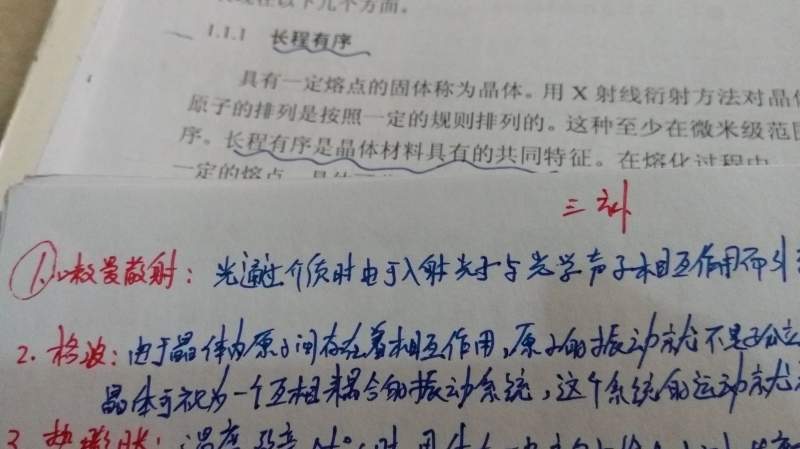 在以下几个方面。
1.1.1 长程有序
具有一定熔点的固体称为晶体。用 X 射线衍射方法对晶
原子的排列是按照一定的规则排列的。这种至少在微米级范
序。长程有序是晶体材料具有的共同特征。在熔化过程中
一定的熔点
三
1. 曼散射：光通过介质时由于入射光子与光学声子相互作用而引
2. 格波：由于晶体内原子间存在着相互作用，原子的振动就不是孤立
晶体可视为一个互相耦合的振动系统，这个系统的运动就
3. 热膨胀：温度